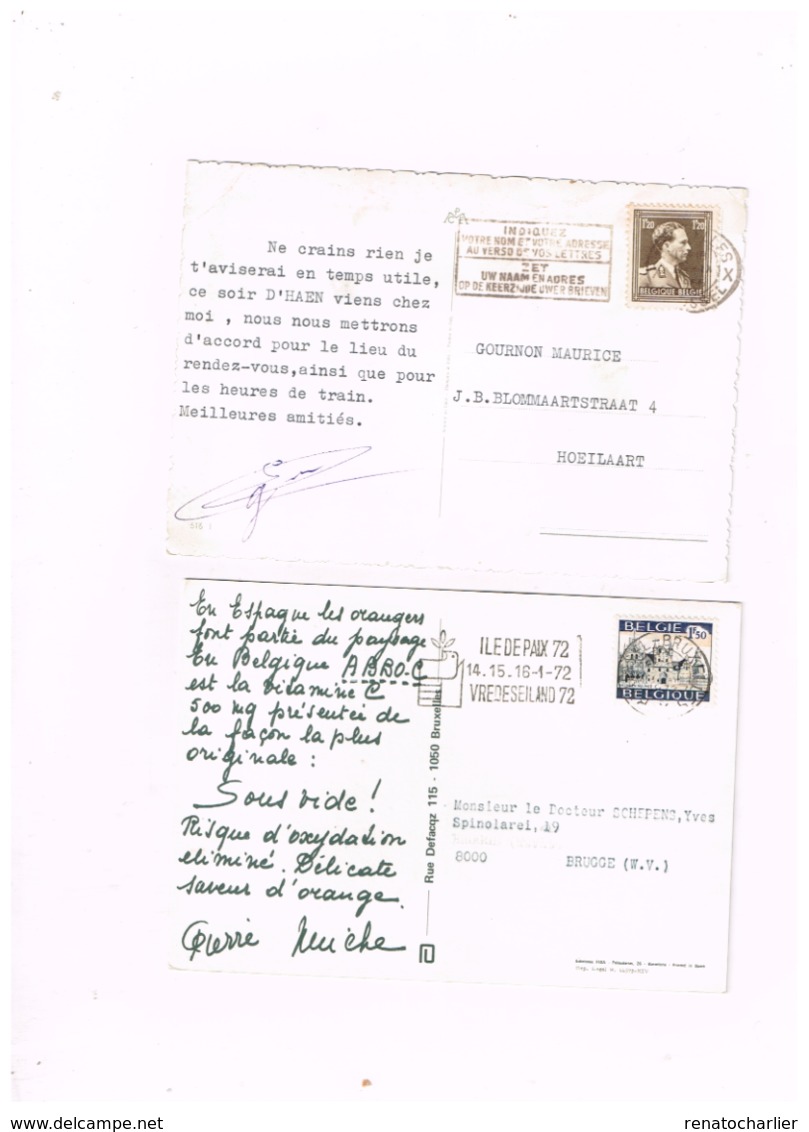 INDIQUEZ
VOTRE NOM ET VOTRE ADRESSE
AU VERSO DE VOS LETTRES
ZET
UW NAAM EN ADRES
OP DE KEERZIJDE UWER BRIEVEN
1'20 1'20
BELGIQUE BELGIE
Ne crains rien je
t'aviserai en temps utile,
ce soir D'HAEN viens chez
moi , nous nous mettrons
d'accord pour le lieu du
rendez-vous,ainsi que pour
les heures de train.
Meilleures amitiés.
GOURNON MAURICE
J.B.BLOMMAARTSTRAAT 4
HOEILAART
En Espagne les orangers
font partie du paysage
En Belgique ABBO-C
est la vitamine C
500 mg présentée de
la façon la plus
originale :
Sous vide !
Risque d'oxydation
eliminé. Délicate
saveur d'orange.
Pierre
Rue Defacqz 115 - 1050 Bruxelles
ILE DE PAIX 72
14.15.16-1-72
VREDESEILAND 72
BELGIE 1F50
BELGIQUE
Monsieur le Docteur SCHEPENS,Yves
Spinolarei,19
8000 BRUGGE (W.V.)
delcampe.net
renatocharlier